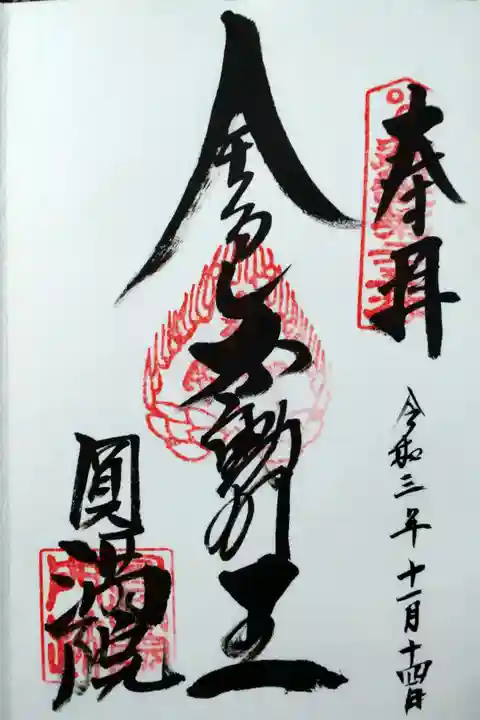 奉拝
令和三年十一月十四日
金色不動明王
圓満院